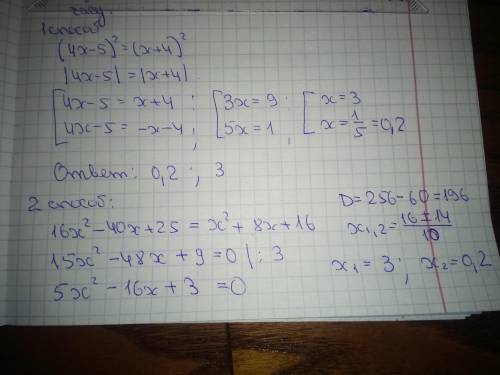 1 способ
(4x-5)² = (x+4)²
|4x-5| = |x+4|
[4x-5 = x+4 ; [3x = 9 ; [x = 3
4x-5 = -x-4 ; 5x = 1 ; x = 1/5 = 0,2
Ответ: 0,2 ; 3
2 способ:
16x² - 40x + 25 = x² + 8x + 16
15x² - 48x + 9 = 0 | : 3
5x² - 16x + 3 = 0
D = 256 - 60 = 196
x₁,₂ = (16 ± 14)/10
x₁ = 3 ; x₂ = 0,2